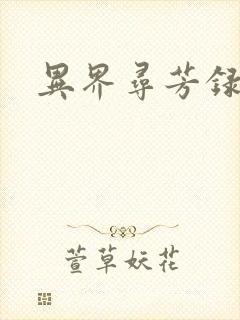 異界尋芳録
萱草妖花